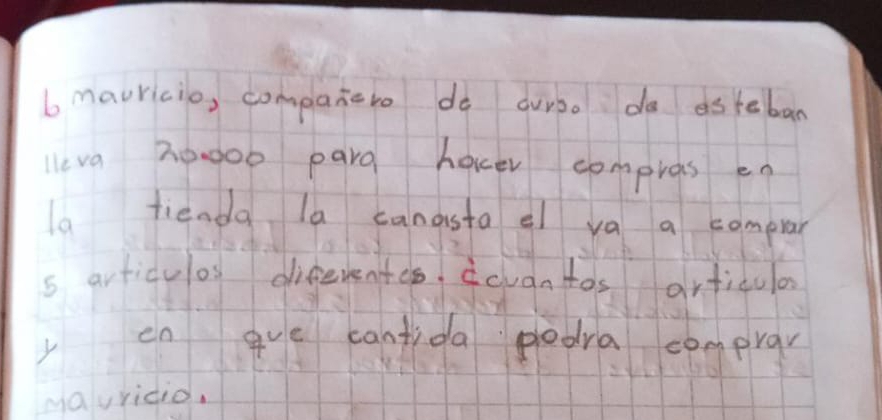 6 mauricio, compañero de curso de esteban
lleva 20.000 para hacer compras en
la tienda la canasta el va a comprar
5 articulos diferentes. ¿cuantos articulos
y en que cantida podra comprar
mauricio.